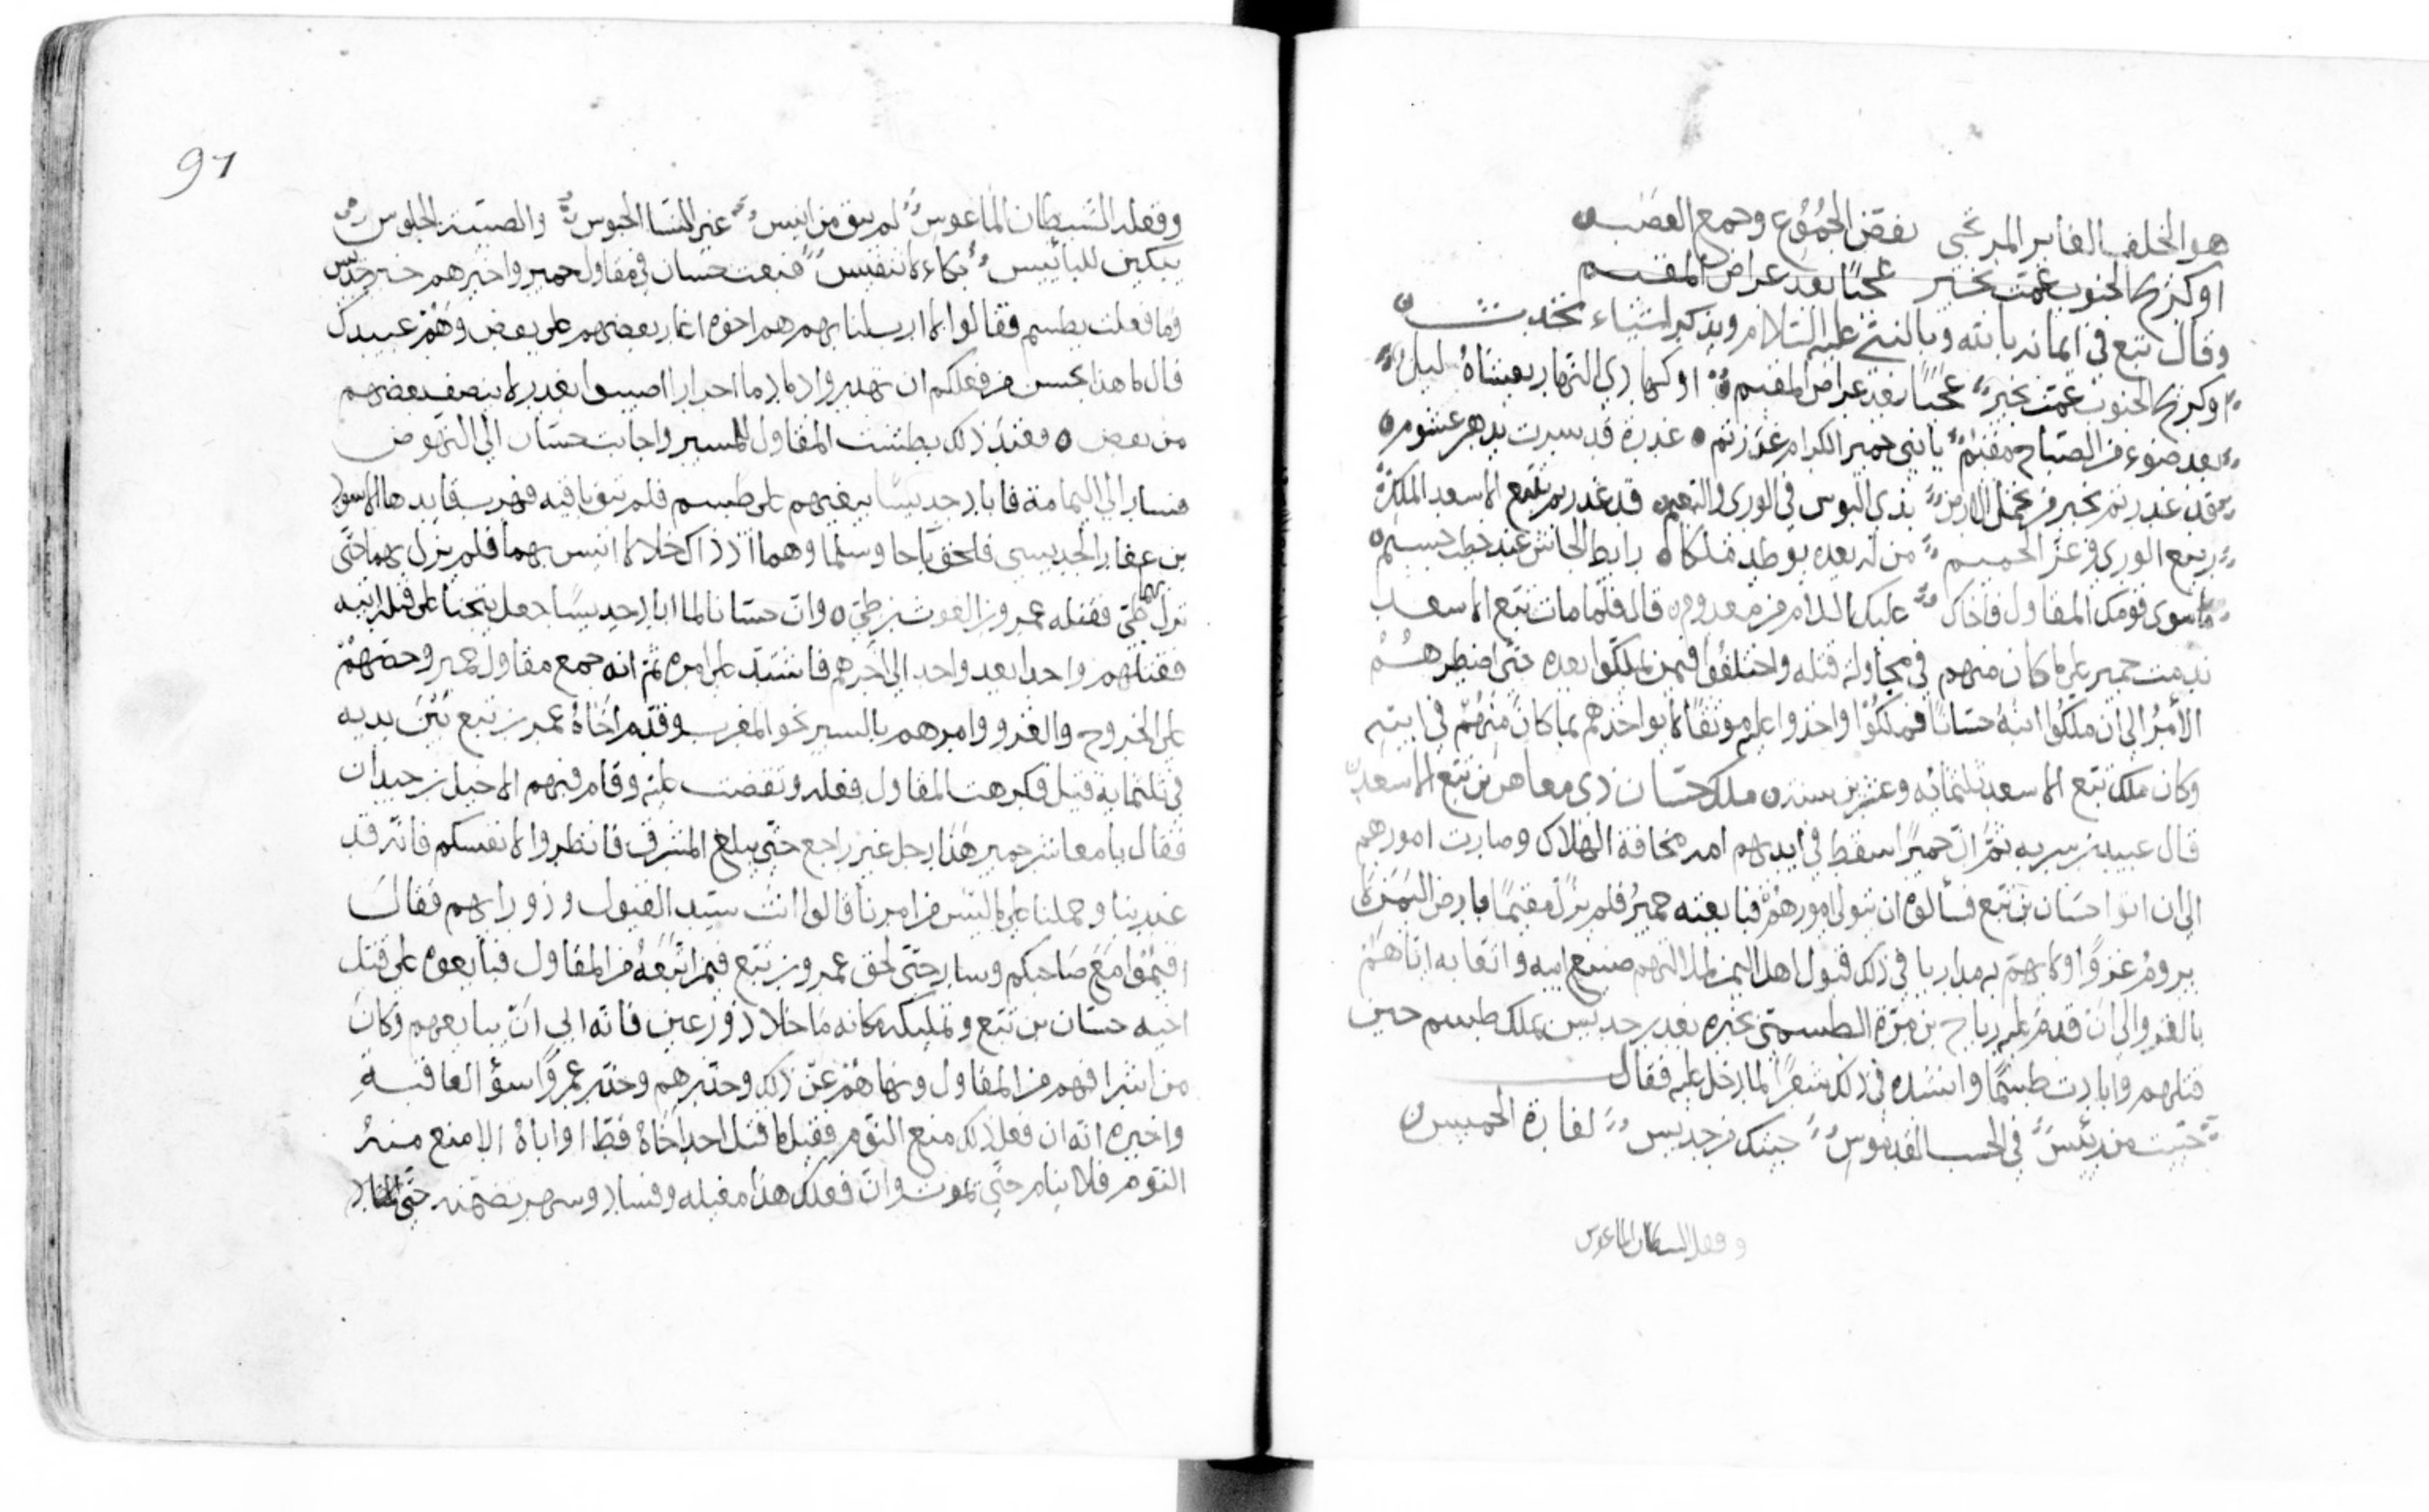 هو الخلف الغابر المرتجى بفض الجموع وجمع العصبه
او كريح الجنوب عمت بخير عجبا بعد عراص المقسم
وقال تبع في ايمانه بالله وبالنبي عليه السلام ويذكر اشياء تحدث
او كريح الجنوب عمت بخير عجبا بعد عراض المقيم او كهادي النهار يغشاه ليل
بعد ضوء من الصباح مقيم يا بني حمير الكرام غدرتم غدرة قد سرت بدهر غشوم
قد غدرتم بخير من يحمل الارض بذي البوس في الورى والنعيم قد غدرتم بتبع الاسعد الملك
ربيع الورى وعز الحميم من له بعده توطد ملكا رابط الجاش عند خطب جسيم
ما سوى قومك المقاول فاخاك عليك الملام من معدوم قال فلما مات تبع الاسعد
ندمت حمير على ما كان منهم في محاولة قتله واختلفوا فيمن يملكوا بعده حتى اضطرهم
الأمر الى ان ملكوا ابنه حسانا فملكوا واخذوا عليه موثقا لا يواخذهم بما كان منهم في ابيه
وكان ملك تبع الاسعد ثلثمائه وعشرين سنه ملك حسان ذي معاهر بن تبع الاسعد
قال عبيد بن سريه ثم ان حميرا سقط في ايديهم امر مخافة الهلاك وصارت امورهم
الى ان اتوا حسان بن تبع فسألوه ان يتولى امورهم فبايعته حمير فلم يزل مقيما بارض اليمن لا
يروم غزوا ولا يهم به مداريا في ذلك قبول اهل اليمن لما نالهم صنيع ابيه واتعابه اياهم
بالغزو الى ان قدم عليه رياح بن مرة الطسمي يخبره بغدر جديس بملك طسم حين
قتلهم وابادت طسما وانشده في ذلك شعرا لما دخل عليه فقال
حييت من رئيس في الحسب القدموس جيتك من جديس لغارة الخميس
وفعل الشيطان الماعوس
91
وفعله الشيطان الماعوس لم يبق من انيس غير النسا الجوس والصبية الجلوس
يبكين للبائيس بكاء لا تنفيس فبعث حسان في مقاول حمير واخبرهم خبر جديس
وما فعلت بطسم فقالوا ما ارسلنا بهم هم اخوه اغار بعضهم على بعض وهم عبيدك
قال ما هذا بحسن من فعلكم ان تهدروا دما احرارا اصيبوا بغدر لا ينصف بعضهم
من بعض فعند ذلك بطشت المقاول للمسير واجابت حسان الى النهوض
فسار الى اليمامة فاباد جديسا ببغيهم على طسم فلم تبق باقيه فهرب قايدها الاسود
بن عفار الجديسي فلحق باجا وسلما وهما اذ ذاك خلاء لا انيس بهما فلم يزل بهما حتى
نزل بهما طي فقتله عمرو بن الغوث بن طي وان حسانا لما اباد جديسا جعل يتجنا على قتلة ابيه
فقتلهم واحدا بعد واحد الى اخرهم فاشتد على امره ثم انه جمع مقاول حمير وحضهم
على الخروج والغزو وامرهم بالسير نحو المغرب وقدم اخاه عمر بن تبع بين يديه
في ثلثماية قيل فكرهت المقاول فعله ونقضت عليه وقام فيهم الاحيل بن حيدان
فقال يا معاشر حمير هذا رجل غير راجع حتى يبلغ المشرق فانظروا لانفسكم فانه قد
غدر بنا وحملنا على ما ليس من امرنا قالوا انت سيد القيول وذو رايهم فقال
اقيموا مع صاحبكم وسار حتى لحق عمرو بن تبع فيمن اتبعه من المقاول فبايعوه على قتل
اخيه حسان بن تبع وتمليكه مكانه ما خلا ذو رعين فانه ابى ان يبايعهم وكان
من اشرافهم من المقاول ونهاهم عن ذلك وحذرهم وحذر عمروا سوء العاقبة
واخبره انه ان فعل ذلك منع النوم فقيل ما قتل احد اخاه قط او اباه الا منع منه
النوم فلا ينام حتى يموت وان فعلك هذا مغبله وفساد وسهر تضمنه حتى